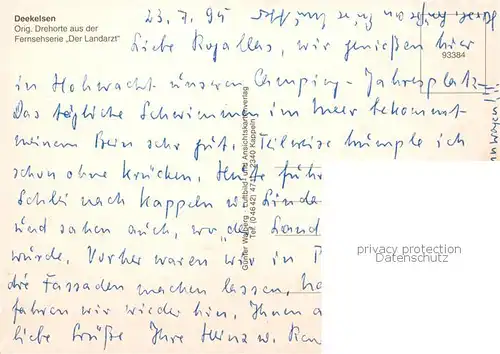 Deekelsen
Orig. Drehorte aus der
Fernsehserie „Der Landarzt"
23.7.95
Liebe Rogallas, wir genießen hier
93384
in Hohwacht unseren Camping-Jahresplatz
Das tägliche Schwimmen im Meer bekommt
meinem Bein sehr gut. Teilweise humple ich
schon ohne Krücken. Heute
Schlei nach Kappeln
und sahen auch, wo „der Land
wurde. Vorher waren wir in
die Fassaden machen lassen,
fahren wir wieder hin. Ihnen
liebe Grüße Ihre Heinz u.
Günter Walberg · Luftbild- und Ansichtskartenverlag
2340 Kappeln
privacy protection
Datenschutz